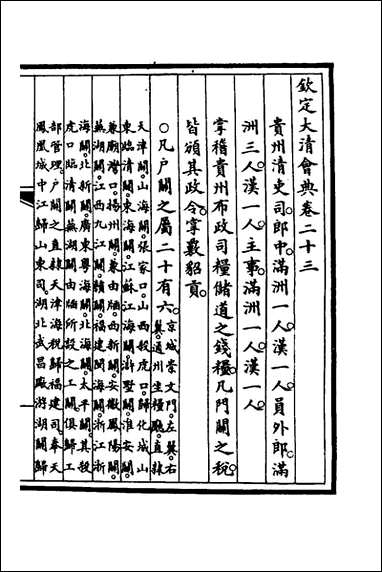 欽定大清會典卷二十三
貴州清吏司郎中。滿洲一人。漢一人。員外郎。滿
洲三人。漢一人。主事。滿洲一人。漢一人。
掌稽貴州布政司糧儲道之錢糧。凡門關之稅。
皆頒其政令。掌覈貂貢。
○凡戶關之屬二十有六。京城崇文門。左翼。右
翼。通州坐糧廳。直隸
天津關。山海關。張家口。山西殺虎口。歸化城。山
東臨清關。東海關。江蘇江海關。滸墅關。淮安關。
兼廟灣口。揚州關。兼由閘。西新關。安徽鳳陽關。
蕪湖關。江西九江關。贛關。福建閩海關。浙江浙
海關。北新關。廣東粵海關。北海關。太平關。其殺
虎口臨清關蕪湖關由閘所設之工關。俱歸工
部管理。戶關之直隸天津海稅歸福建司。奉天
鳳凰城中江歸山東司。湖北武昌廠游湖關歸